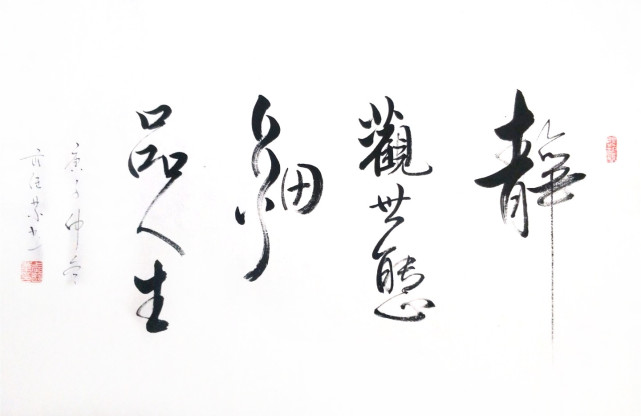 靜
觀世態
細
品人生
庚子仲